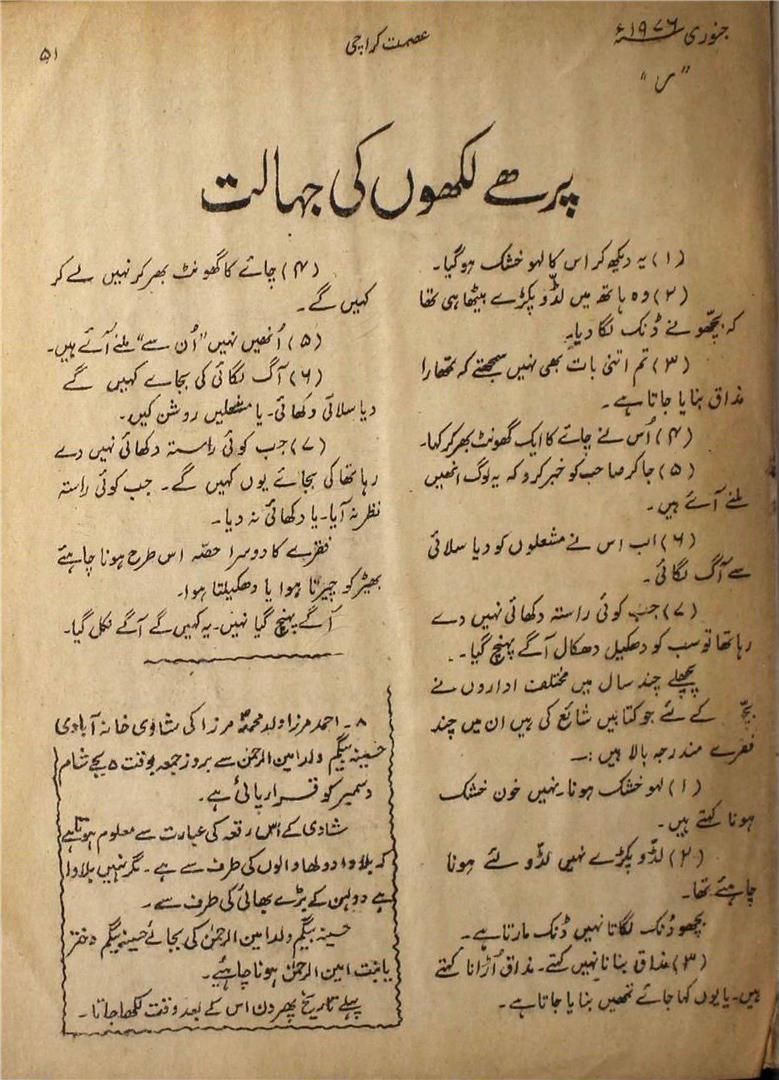 جنوری ۱۹۷۶ء
عصمت کراچی
۵۱
"س"
پڑھے لکھوں کی جہالت
(۱) یہ دیکھ کر اس کا لہو خشک ہوگیا۔
(۲) وہ ہاتھ میں لڈو پکڑے بیٹھا ہی تھا
کہ بچھو نے ڈنک لگا دیا۔
(۳) تم اتنی بات بھی نہیں سمجھتے کہ تمھارا
مذاق بنایا جاتا ہے۔
(۴) اُس نے چائے کا ایک گھونٹ بھر کر کہا۔
(۵) جاکر صاحب کو خبر کرو کہ یہ لوگ انھیں
ملنے آئے ہیں۔
(۶) اب اس نے مشعلوں کو دیا سلائی
سے آگ لگائی۔
(۷) جب کوئی راستہ دکھائی نہیں دے
رہا تھا تو سب کو دھکیل دھکال آگے پہنچ گیا۔
پچھلے چند سال میں مختلف اداروں نے
بچّوں کے لئے جو کتابیں شائع کی ہیں ان میں چند
فقرے مندرجہ بالا ہیں :۔
(۱) لہو خشک ہونا نہیں خون خشک
ہونا کہتے ہیں۔
(۲) لڈو پکڑے نہیں لڈو لئے ہونا
چاہئے تھا۔
بچھو ڈنک لگاتا نہیں ڈنک مارتا ہے۔
(۳) مذاق بنانا نہیں کہتے۔ مذاق اُڑانا کہتے
ہیں۔ یا یوں کہا جائے تمھیں بنایا جاتا ہے۔
(۴) چائے کا گھونٹ بھر کر نہیں لے کر
کہیں گے۔
(۵) اُنھیں نہیں "اُن سے" ملنے آئے ہیں۔
(۶) آگ لگائی کی بجائے کہیں گے
دیا سلائی دکھائی۔ یا مشعلیں روشن کیں۔
(۷) جب کوئی راستہ دکھائی نہیں دے
رہا تھا کی بجائے یوں کہیں گے۔ جب کوئی راستہ
نظر نہ آیا۔ یا دکھائی نہ دیا۔
فقرے کا دوسرا حصّہ اس طرح ہونا چاہئے
بھیڑ کو چیرتا ہوا یا دھکیلتا ہوا۔
آگے پہنچ گیا نہیں۔ یہ کہیں گے آگے نکل گیا۔
۸۔ احمد مرزا ولد محمد مرزا کی شادی خانہ آبادی
حسینہ بیگم ولد امین الرحمٰن سے بروز جمعہ بوقت ۵ بجے شام
دسمبر کو قرار پائی ہے۔
شادی کے اس رقعہ کی عبارت سے معلوم ہوتا ہے
کہ بلاوا دولھا والوں کی طرف سے ہے۔ مگر نہیں بلاوا
ہے دولہن کے بڑے بھائی کی طرف سے۔
حسینہ بیگم ولد امین الرحمٰن کی بجائے حسینہ بیگم دختر
یا بنت امین الرحمٰن ہونا چاہیے۔
پہلے تاریخ پھر دن اس کے بعد وقت لکھا جاتا۔